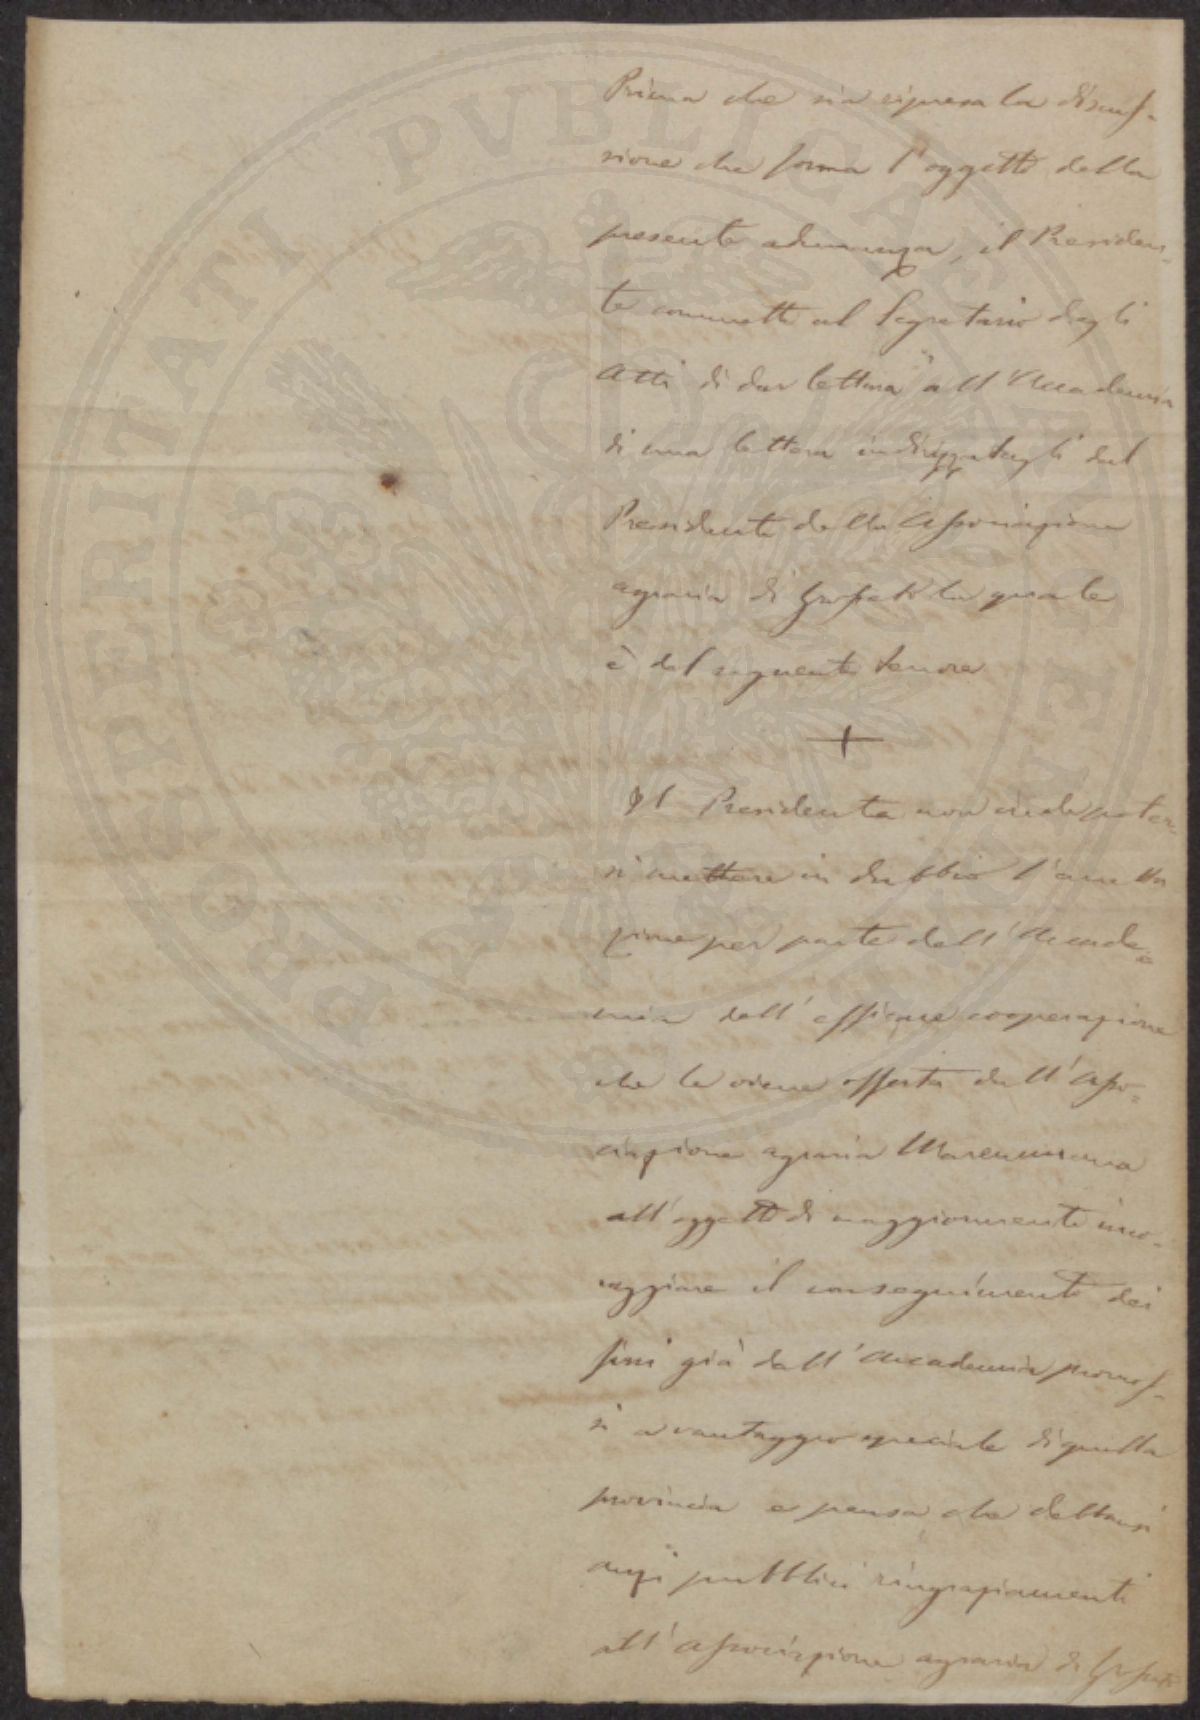 Prima che sia ripresa la discus-
sione che forma l'oggetto della
presente adunanza, il Presiden-
te commette al Segretario degli
Atti di dar lettura all'Accademia
di una lettera indirizzatagli dal
Presidente della Associazione
agraria di Grosseto la quale
è del seguente tenore
+
Il Presidente non crede poter-
si mettere in dubbio l'accetta
zione per parte dell'Accade=
mia dell'efficace cooperazione
che le viene offerta dall'Asso=
ciazione agraria Maremmana
all'oggetto di maggiormente inco-
raggiare il conseguimento dei
fini già dall'Accademia promos-
si a vantaggio speciale di quella
provincia e pensa che debbansi
anzi pubblici ringraziamenti
all'Associazione agraria di Grosseto
PROSPERITATI PVBLICAE AVGENDAE